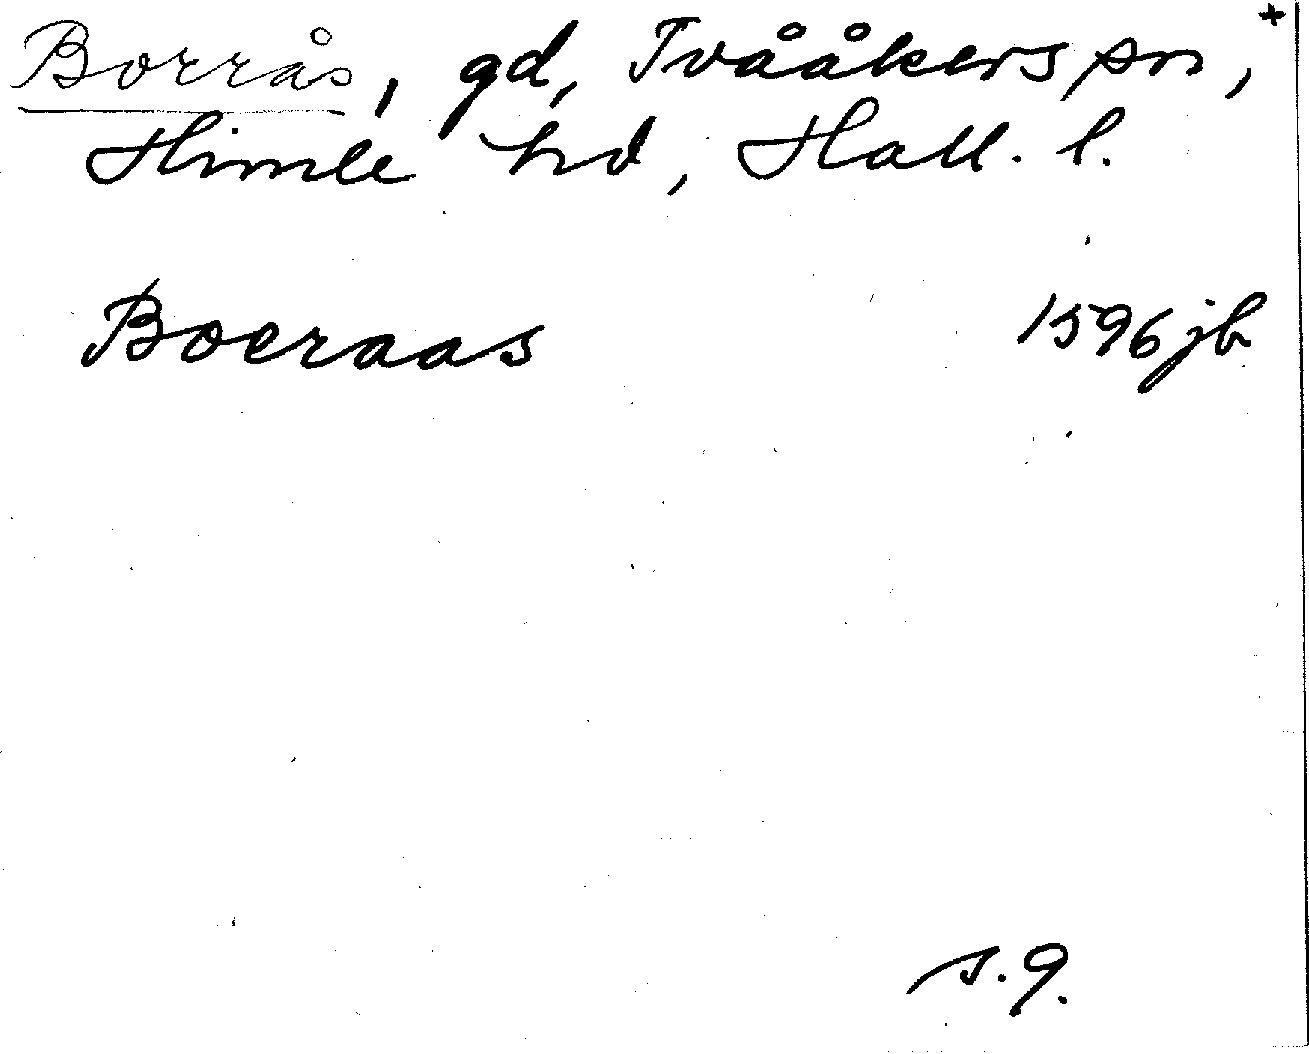 +
Borrås, gd, Tvååkers sn,
Himle hd, Hall. l.
Boeraas 1596 jb
s. 9.